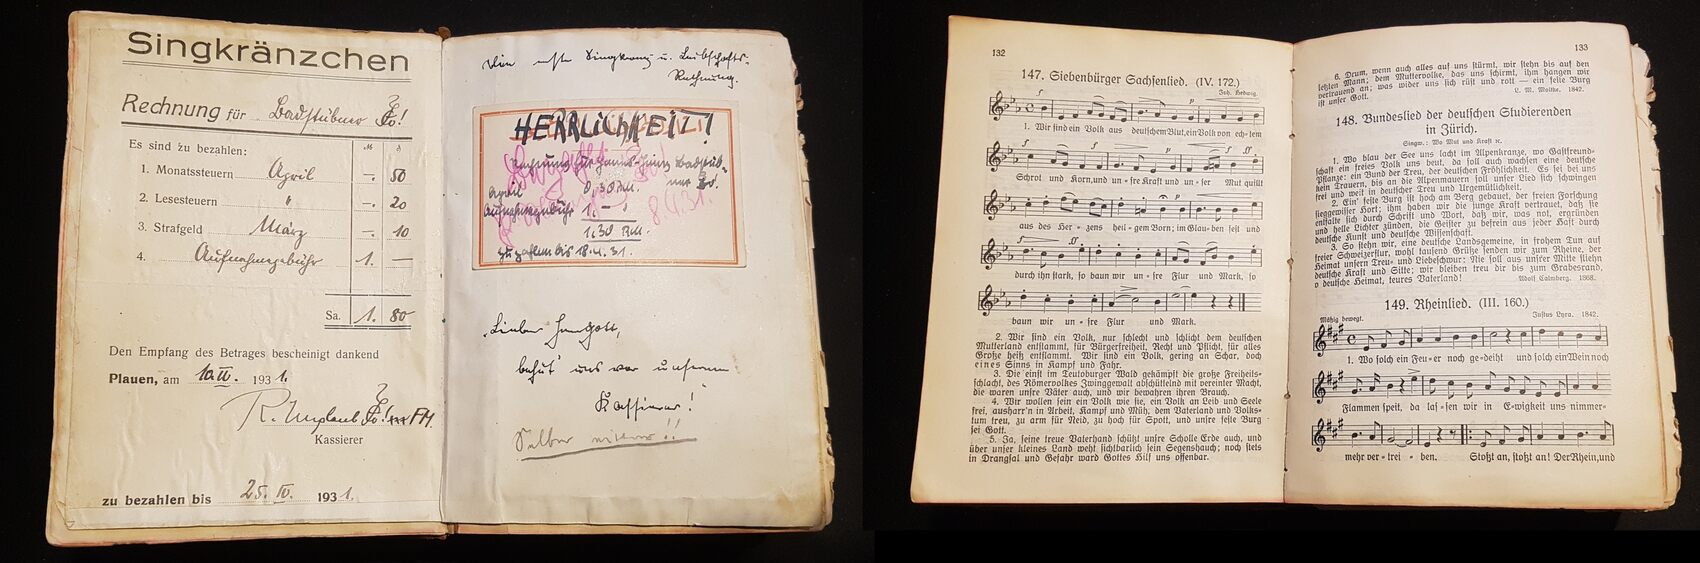 Singkränzchen
Rechnung für Badstübner
Es sind zu bezahlen:
1. Monatssteuern April —. 50
2. Lesesteuern " —. 20
3. Strafgeld März —. 10
4. Aufnahmegebühr 1. —
Sa. 1. 80
Den Empfang des Betrages bescheinigt dankend
Plauen, am 10. IV. 1931.
FM.
Kassierer
zu bezahlen bis 25. IV. 1931.
Rechnung.
HERRLICHKEIT!
April 0,30 RM.
Aufnahmegebühr 1.—
1.30 RM.
zu zahlen bis 18.4.31.
Lieber Herrgott,
behüt' uns vor unserem
Kassierer!
132
147. Siebenbürger Sachsenlied. (IV. 172.)
Joh. Hedwig.
1. Wir sind ein Volk aus deutschem Blut, ein Volk von ech-tem
Schrot und Korn, und un-sre Kraft und un-ser Mut quillt
aus des Her-zens heil-gem Born; im Glau-ben fest und
durch ihn stark, so baun wir un-sre Flur und Mark, so
baun wir un-sre Flur und Mark.
2. Wir sind ein Volk, nur schlecht und schlicht dem deutschen
Mutterland entstammt, für Bürgerfreiheit, Recht und Pflicht, für alles
Große heiß entflammt. Wir sind ein Volk, gering an Schar, doch
eines Sinns in Kampf und Fahr.
3. Die einst im Teutoburger Wald gekämpft die große Freiheits-
schlacht, des Römervolkes Zwinggewalt abschüttelnd mit vereinter Macht,
die waren unsre Väter auch, und wir bewahren ihren Brauch.
4. Wir wollen sein ein Volk wie sie, ein Volk an Leib und Seele
frei, ausharr'n in Arbeit, Kampf und Müh, dem Vaterland und Volks-
tum treu, zu arm für Neid, zu hoch für Spott, und unsre feste Burg
sei Gott.
5. Ja, seine treue Vaterhand schützt unsre Scholle Erde auch, und
über unser kleines Land weht sichtbarlich sein Segenshauch; noch stets
in Drangsal und Gefahr ward Gottes Hilf uns offenbar.
133
6. Drum, wenn auch alles auf uns stürmt, wir stehn bis auf den
letzten Mann; dem Muttervolke, das uns schirmt, ihm hangen wir
vertrauend an; was wider uns sich rüst und rott — ein feste Burg
ist unser Gott. L. M. Moltke. 1842.
148. Bundeslied der deutschen Studierenden
in Zürich.
Singw.: Wo Mut und Kraft ꝛc.
1. Wo blau der See uns lacht im Alpenkranze, wo Gastfreund-
schaft ein freies Volk uns beut, da soll auch wachsen eine deutsche
Pflanze: ein Bund der Treu, der deutschen Fröhlichkeit. Es sei bei uns
kein Trauern, bis an die Alpenmauern soll unser Lied sich schwingen
frei und weit in deutscher Treu und Urgemütlichkeit.
2. Ein' feste Burg ist hoch am Berg gebauet, der freien Forschung
sieggewisser Hort; ihm haben wir die junge Kraft vertrauet, daß sie
entfalte sich durch Schrift und Wort, daß wir, was not, ergründen
und helle Lichter zünden, die Geister zu befrein aus jeder Haft durch
deutsche Kunst und deutsche Wissenschaft.
3. So stehn wir, eine deutsche Landsgemeine, in frohem Tun auf
freier Schweizerflur, wohl tausend Grüße senden wir zum Rheine, der
Heimat unsern Treu- und Liebeschwur: Nie soll aus unsrer Mitte fliehn
deutsche Kraft und Sitte; wir bleiben treu dir bis zum Grabesrand,
o deutsche Heimat, teures Vaterland! Adolf Calmberg. 1868.
149. Rheinlied. (III. 160.)
Mäßig bewegt. Justus Lyra. 1842.
1. Wo solch ein Feu-er noch ge-deiht und solch ein Wein noch
Flammen speit, da las-sen wir in E-wigkeit uns nimmer-
mehr ver-trei-ben. Stoßt an, stoßt an! Der Rhein, und